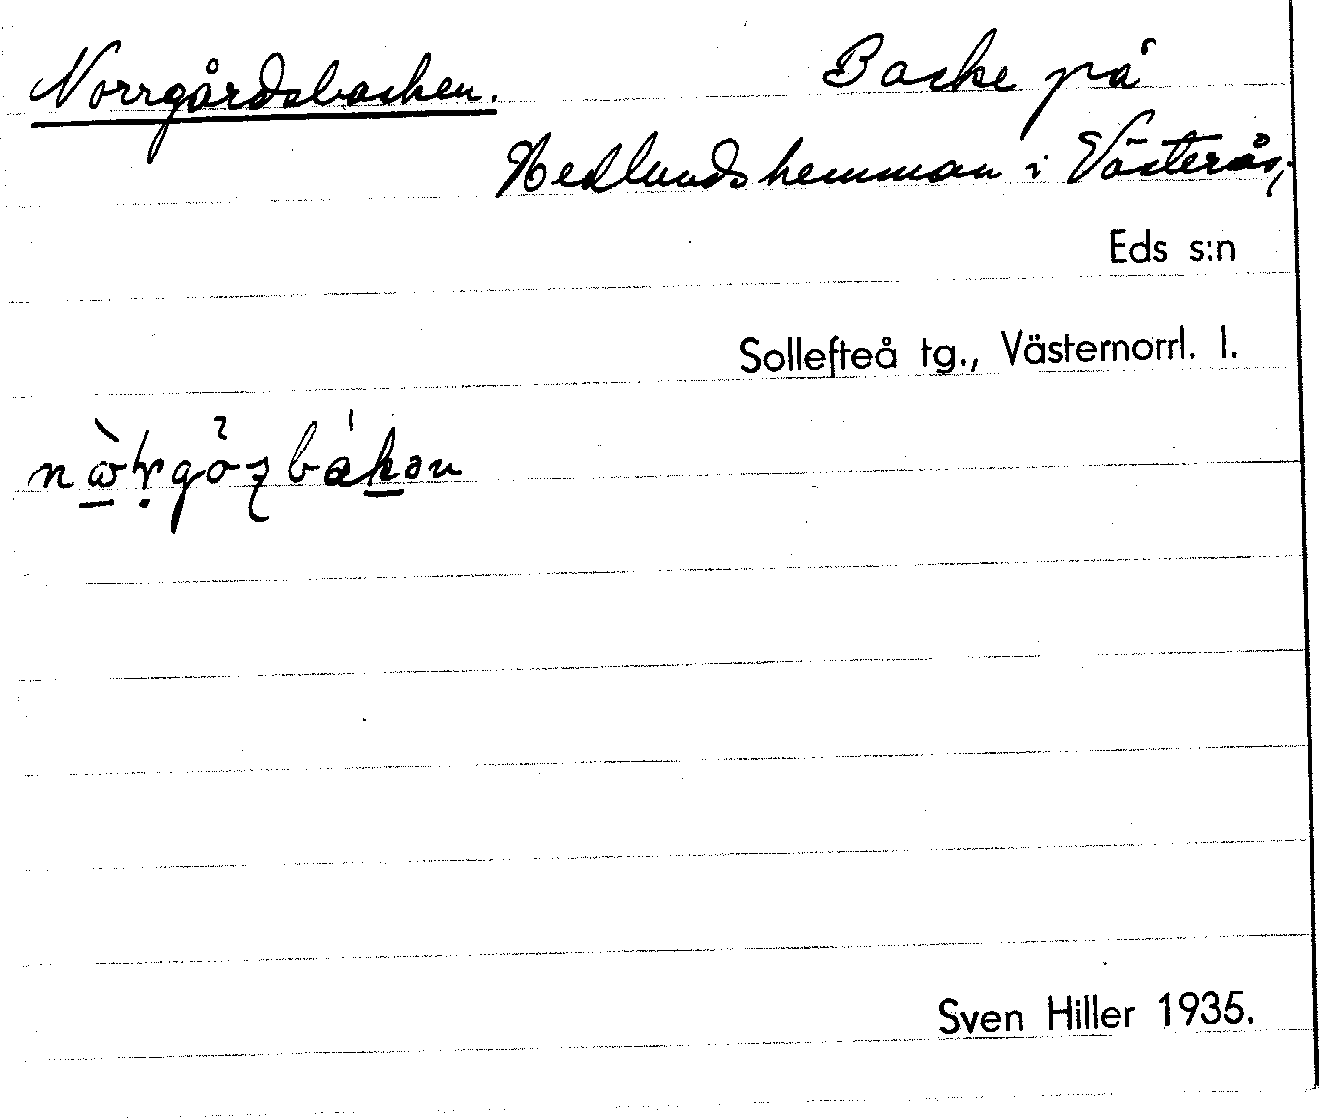 Norrgårdsbacken. Backe på
Hedlundshemman i Västerås,
Eds s:n
Sollefteå tg., Västernorrl. l.
Sven Hiller 1935.